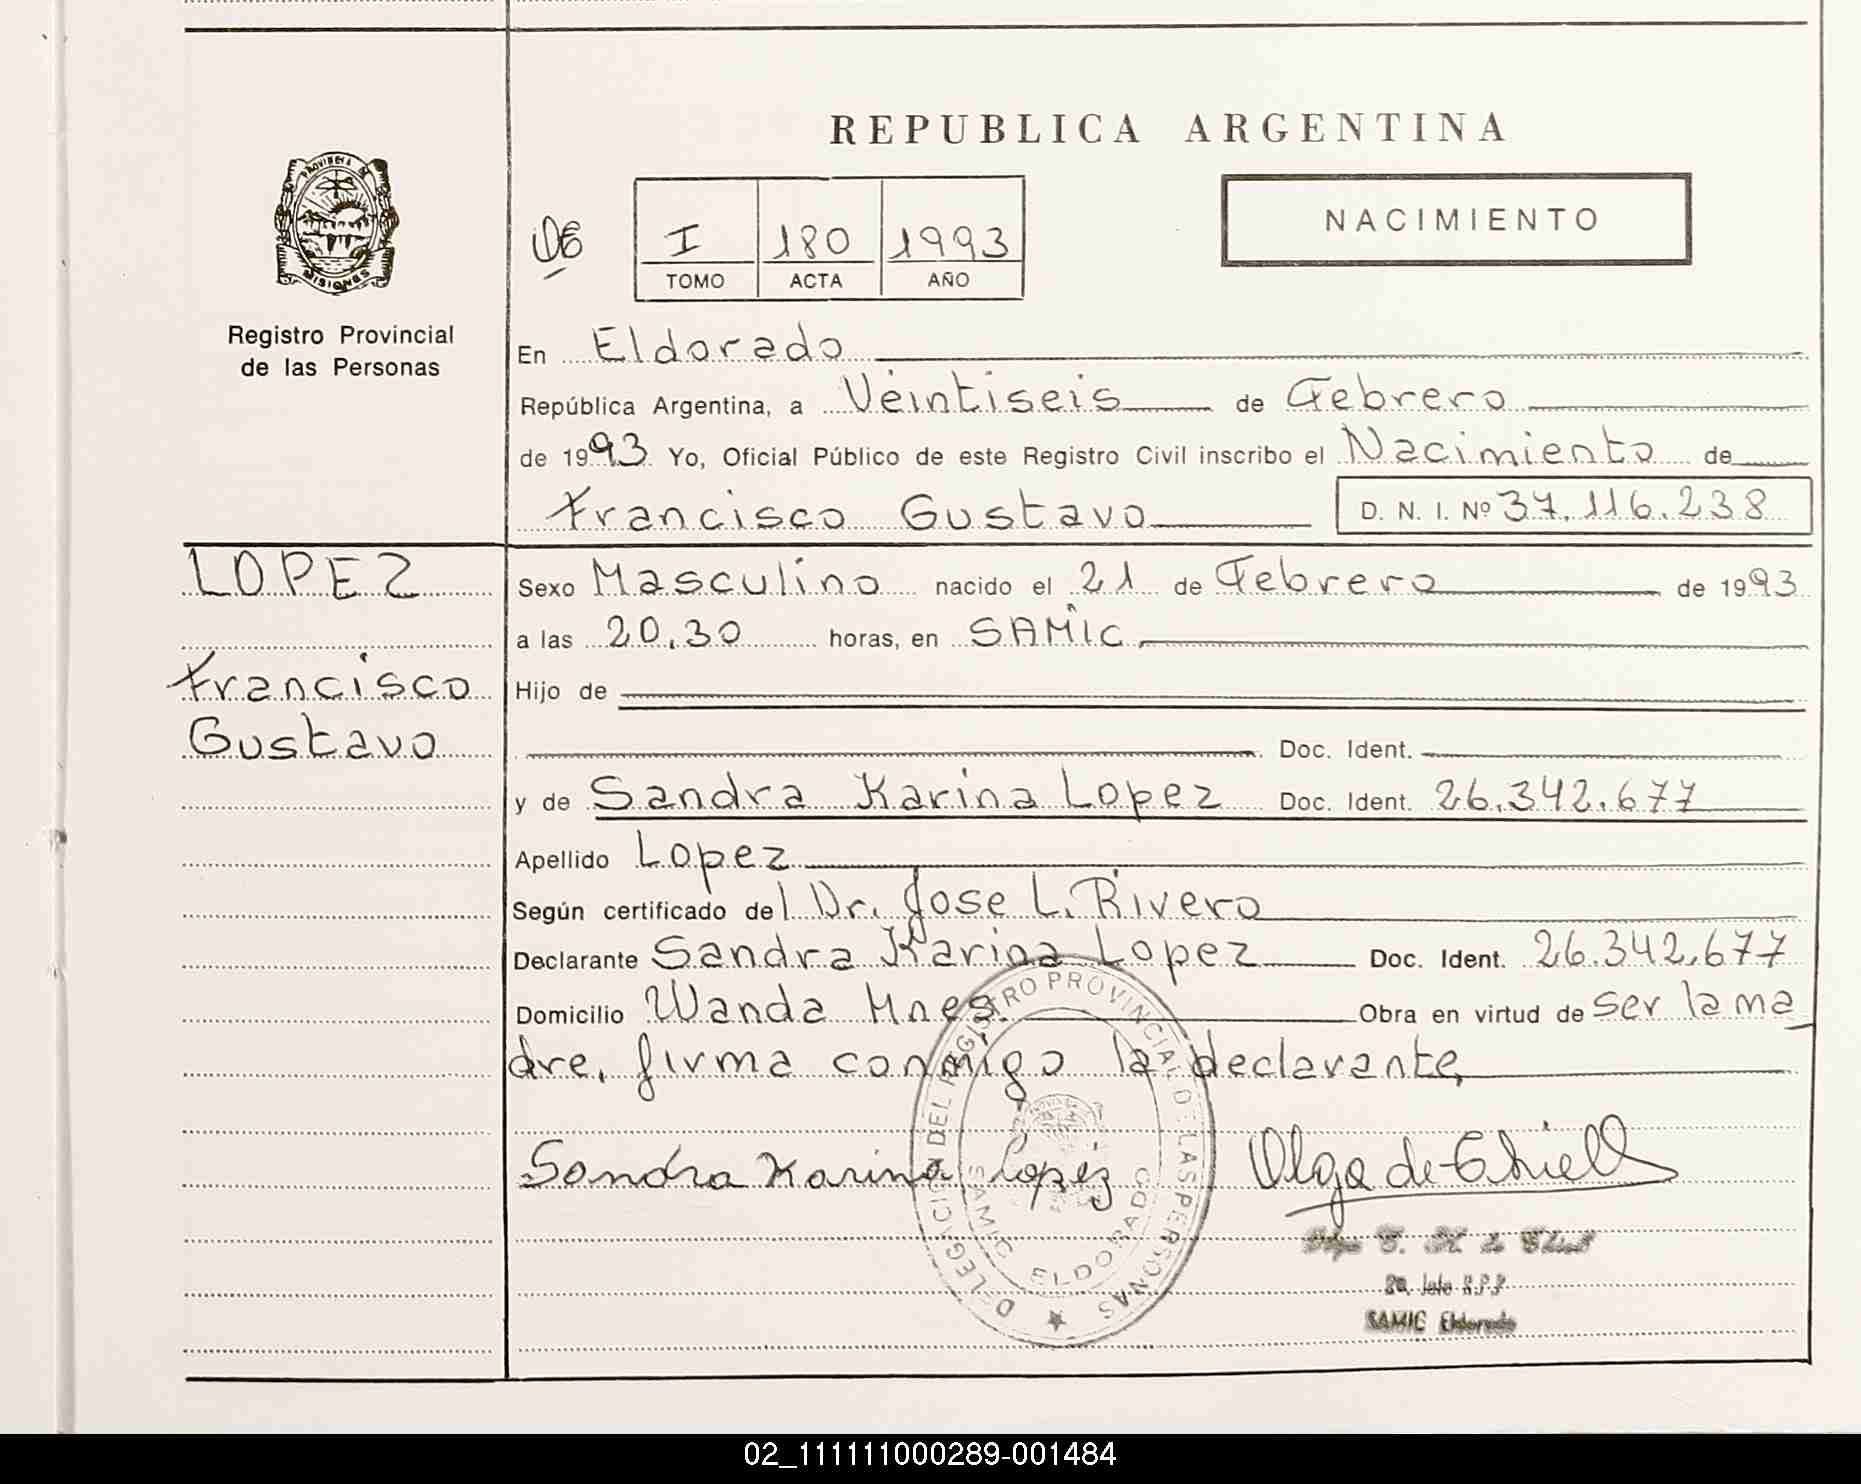 REPUBLICA ARGENTINA
PROVINCIA DE
MISIONES
Registro Provincial
de las Personas
I 180 1993
TOMO ACTA AÑO
NACIMIENTO
En Eldorado
República Argentina, a Veintiseis de Febrero
de 1993 Yo, Oficial Público de este Registro Civil inscribo el Nacimiento de
Francisco Gustavo D. N. I. Nº 37.116.238
LOPEZ
Francisco
Gustavo
Sexo Masculino nacido el 21 de Febrero de 1993
a las 20.30 horas, en SAMIC
Hijo de
Doc. Ident.
y de Sandra Karina Lopez Doc. Ident. 26.342.677
Apellido Lopez
Según certificado del Dr. Jose L. Rivero
Declarante Sandra Karina Lopez Doc. Ident. 26.342.677
Domicilio Wanda Mnes. Obra en virtud de ser la ma
dre, firma conmigo la declarante,
Sandra Karina Lopez Olga de Thiell
DELEGACION DEL REGISTRO PROVINCIAL DE LAS PERSONAS
SAMIC ELDORADO
SAMIC Eldorado
02_111111000289-001484